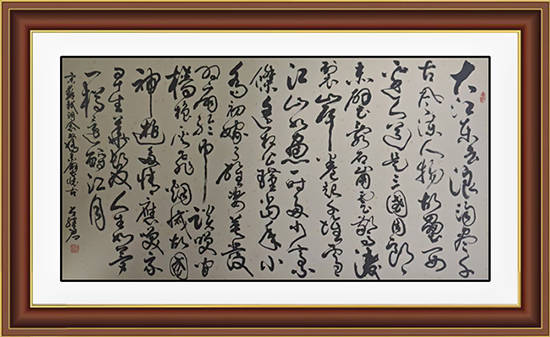 大江东去浪淘尽千
古风流人物故垒西
边人道是三国周郎
赤壁乱石崩云惊涛
裂岸卷起千堆雪
江山如画一时多少豪
杰遥想公瑾当年小
乔初嫁了雄姿英发
羽扇纶巾谈笑间
樯橹灰飞烟灭故国
神游多情应笑我
早生华发人生如梦
一樽还酹江月
宋苏轼词念奴娇赤壁怀古